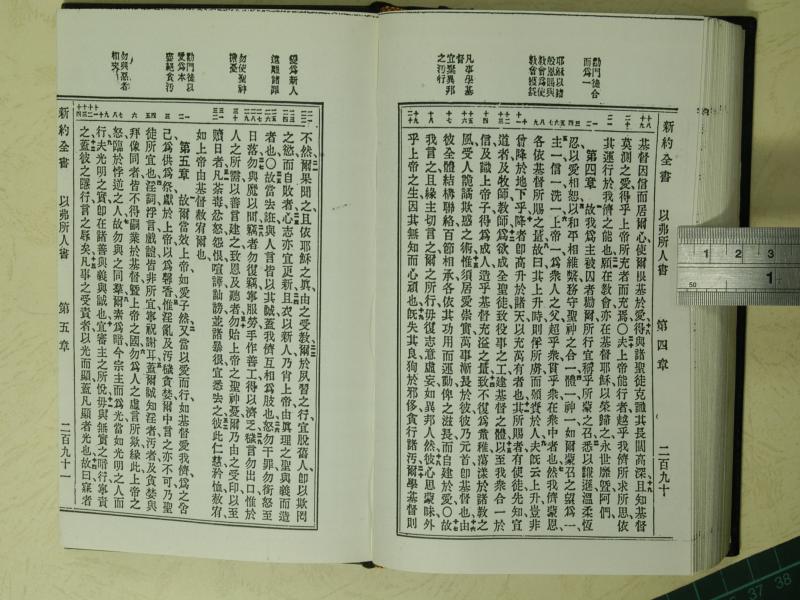 新約全書　以弗所人書　第四章　二百九十
勸門徒合
而為一
耶穌以諸
般恩賜與
敎會為使
敎會獲益
宜棄異邦
之汚行
基督因信而居爾心使爾根基於愛得與諸聖徒克識其長闊高深且知基督
莫測之愛得乎上帝所充者而充焉○夫上帝能行者越乎我儕所求所思依
其運行於我儕之能也願在敎會亦在基督耶穌以榮歸之永世靡曁阿們
第四章　故我爲主被囚者勸爾所行宜稱乎所蒙之召悉以謙遜溫柔恆
忍以愛相恕以和平相維繫務守聖神之合一體一神一如爾蒙召之望爲一
主一信一洗一上帝一爲衆人之父超乎衆貫乎衆在衆中者也然我儕蒙恩
各依基督所賜之量故曰其上升時則俘所虜而頒賚於人夫旣云上升豈非
曾降於地下乎降者卽高升於諸天以充萬有者也其所賜者有使徒先知宣
道者及牧師敎師爲欲成全聖徒致役事之工建基督之體以至我衆合一於
信及識上帝子得爲成人造乎基督充溢之量致不復爲童稚蕩漾於諸敎之
風受人詭譎欺惑之術惟須居愛崇實萬事漸長於彼彼乃元首卽基督也由
彼全體結構聯絡百節相承各依其功用而運動俾之滋長而自建於愛○故
我言之且緣主切言之爾之所行毋復志意虛妄如異邦人然彼心思蒙昧外
乎上帝之生因其無知而心頑也旣失其良狥於邪侈貪行諸汚爾學基督則
新約全書　以弗所人書　第五章　二百九十一
變爲新人
遠離諸罪
勿使聖神
擔憂
勸門徒以
愛爲本
盡絕貪汚
勿與惡者
不然爾果聞之且依耶穌之眞由之受敎爾於夙習之行宜脫舊人卽以欺罔
之慾而自敗者心志亦宜更新且衣以新人乃肖上帝由眞理之聖與義而造
者也○故當去誑與人言皆以其誠蓋我儕互相爲肢也怒勿干罪勿銜怒至
日落勿與魔以間竊者勿復竊寧服勞手作善工得以濟乏穢言勿出口惟於
人之所需以善言建之致恩及聽者勿貽上帝之聖神憂爾乃由之受印以至
贖日者凡荼毒忿怒怨恨喧譁訕謗並諸暴很宜悉去之彼此仁慈矜恤赦宥
如上帝由基督赦宥爾也
第五章　故爾當效上帝如愛子然又當以愛而行如基督愛我儕爲之舍
己爲供爲祭獻於上帝以爲馨香惟淫亂及汚穢貪婪爾中言之亦不可乃聖
徒所宜也淫詞悖言戲謔皆非所宜寧祝謝耳蓋爾誠知淫者汚者及貪婪與
拜像同者皆不得嗣業於基督曁上帝之國勿爲人之虛言所欺緣此上帝之
怒臨於悖逆之人故勿與之同羣爾素爲暗今宗主而爲光當如光明之人而
行夫光明之實卽在諸善與義與誠也宜審主之所悅毋與無實之暗行寧責
之蓋彼之隱行言之辱矣凡事之受責者以光而顯蓋凡顯者光也故曰寐者